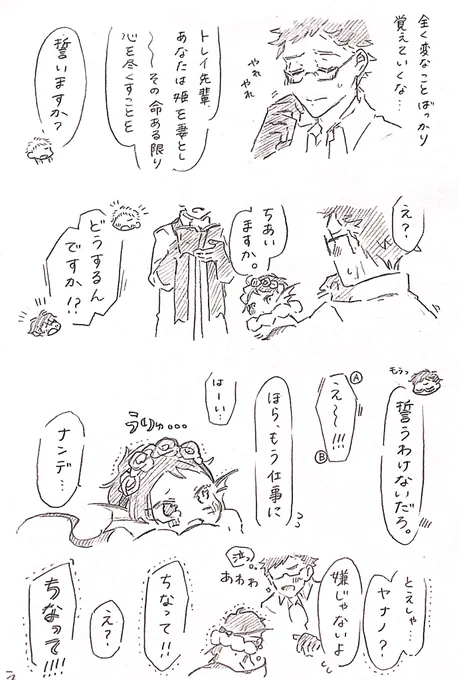 全く変なことばっかり
覚えていくな…
やれ
やれ
トレイ先輩、
あなたは姫を妻とし
〜〜その命ある限り
心を尽くすことを
誓いますか?
え?
ちあい
ますか。
どうするん
ですか!?
もうっ
誓うわけないだろ。
Ⓐ
え〜!!!
Ⓑ
ほら、もう仕事に
はーい…
うりゅ…
ナンデ…
とえしゃ…
ヤナノ?
嫌じゃないよ
泣っ
あわわ
ちなって!!
え?
ちなって!!!!